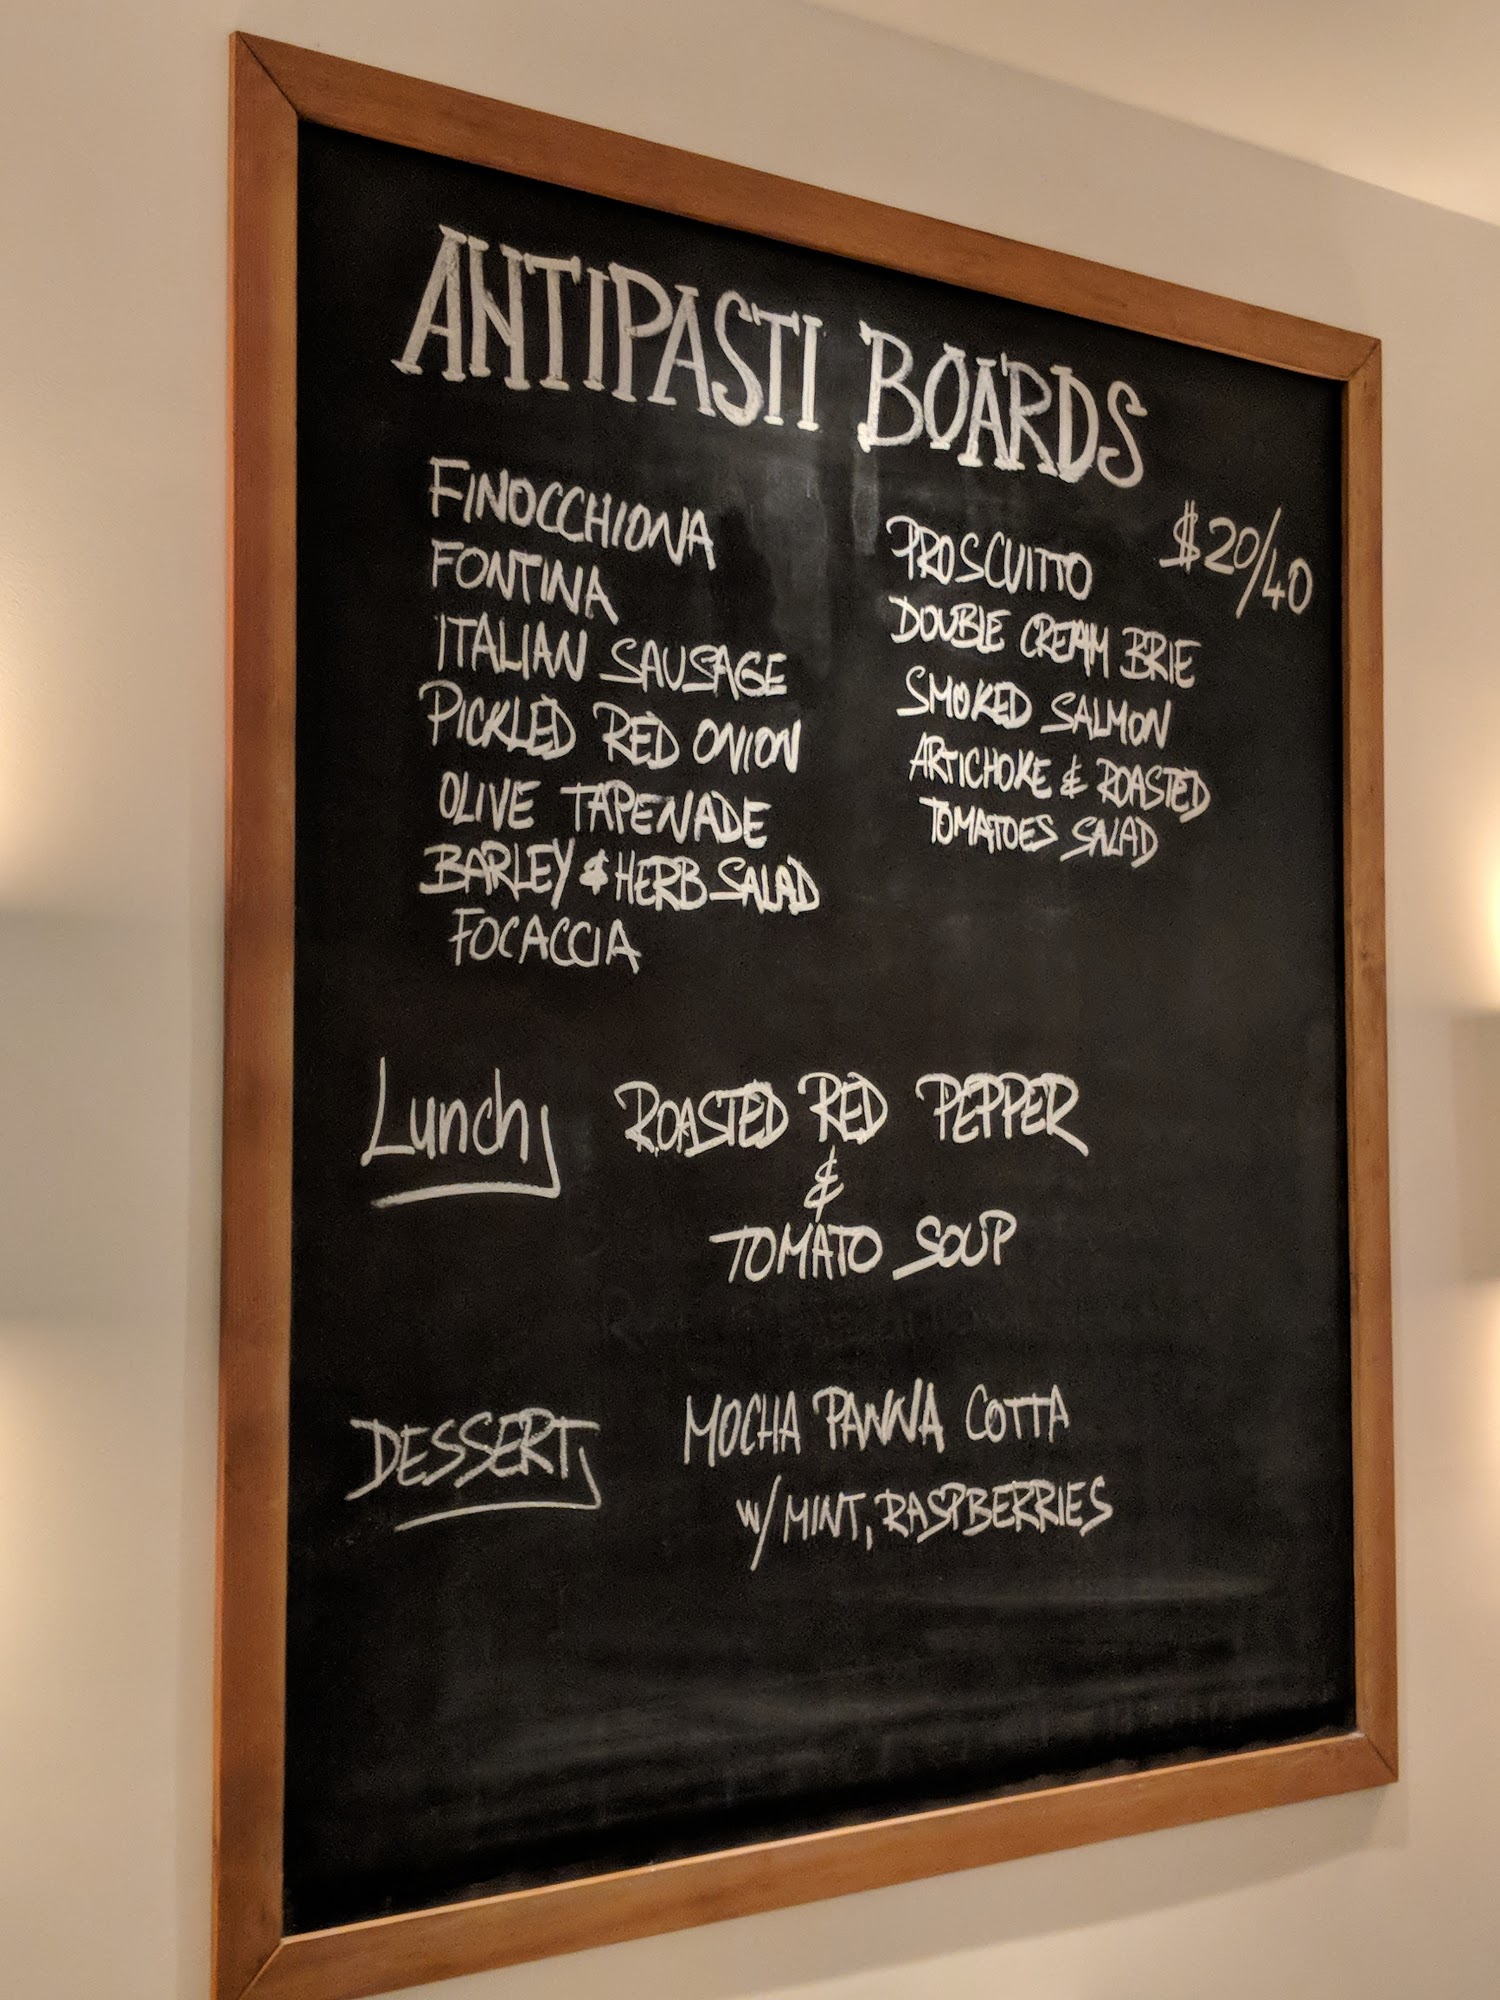 ANTIPASTI BOARDS
$20/40
FINOCCHIONA
FONTINA
ITALIAN SAUSAGE
PICKLED RED ONION
OLIVE TAPENADE
BARLEY & HERB SALAD
FOCACCIA
PROSCUITTO
DOUBLE CREAM BRIE
SMOKED SALMON
ARTICHOKE & ROASTED
TOMATOES SALAD
Lunch
ROASTED RED PEPPER
&
TOMATO SOUP
DESSERT
MOCHA PANNA COTTA
W/ MINT, RASPBERRIES